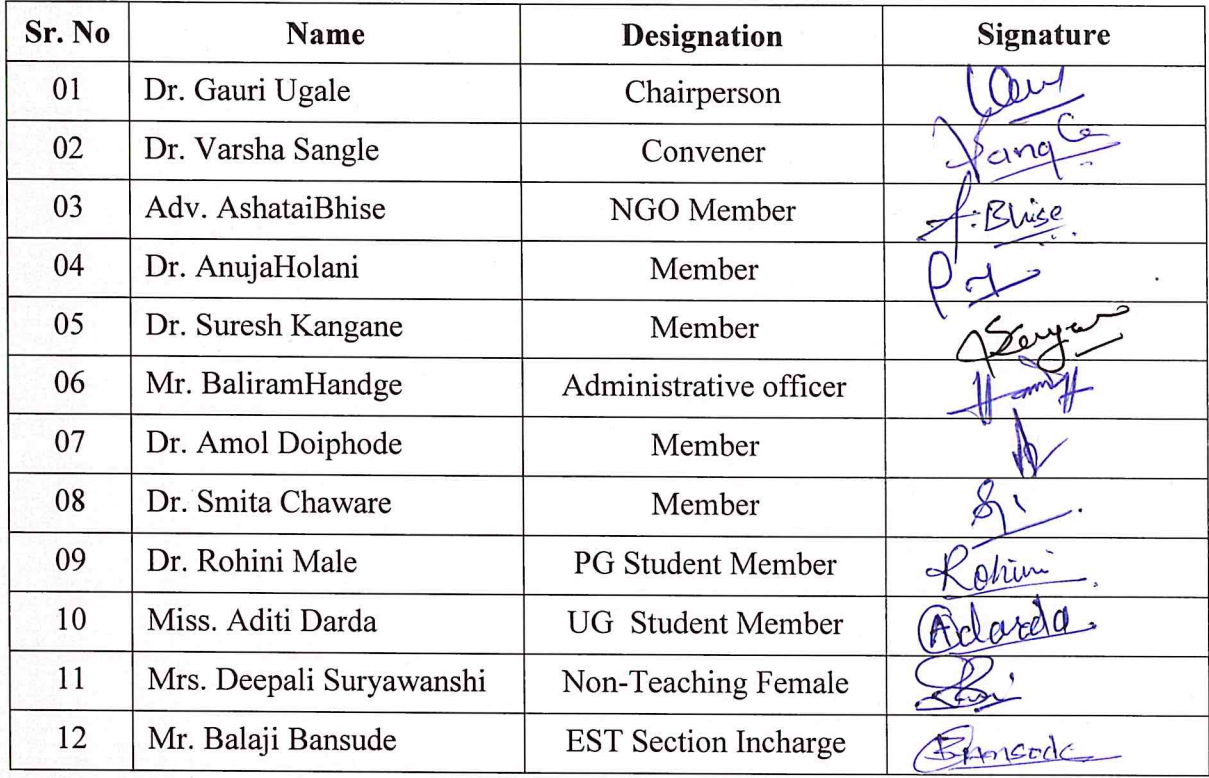 Sr. No Name Designation Signature
01 Dr. Gauri Ugale Chairperson
02 Dr. Varsha Sangle Convener
03 Adv. AshataiBhise NGO Member A. Bhise
04 Dr. AnujaHolani Member
05 Dr. Suresh Kangane Member
06 Mr. BaliramHandge Administrative officer
07 Dr. Amol Doiphode Member
08 Dr. Smita Chaware Member
09 Dr. Rohini Male PG Student Member Rohini
10 Miss. Aditi Darda UG Student Member Adarda
11 Mrs. Deepali Suryawanshi Non-Teaching Female
12 Mr. Balaji Bansude EST Section Incharge Bansode